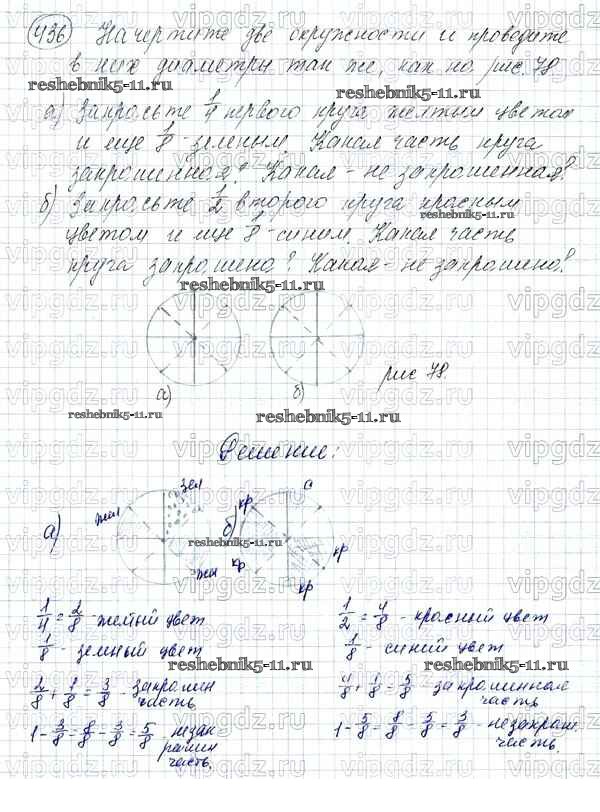 436 Начертите две окружности и проведите
в них диаметры так же, как на рис. 78
а) Закрасьте 1/4 первого круга желтым цветом
и еще 1/8 - зеленым. Какая часть круга
закрашенная? Какая - не закрашенная?
б) Закрасьте 1/2 второго круга красным
цветом и еще 1/8 - синим. Какая часть
круга закрашена? Какая - не закрашена?
а) б) рис 78.
Решение:
а) жел зел жел
б) кр с кр кр кр
1/4 = 2/8 - желтый цвет
1/8 - зеленый цвет
2/8 + 1/8 = 3/8 - закрашен
часть
1 - 3/8 = 8/8 - 3/8 = 5/8 - незак
рашен
часть.
1/2 = 4/8 - красный цвет
1/8 - синий цвет
4/8 + 1/8 = 5/8 - закрашенная
часть
1 - 5/8 = 8/8 - 5/8 = 3/8 - незакраш.
часть.
reshebnik5-11.ru
vipgdz.ru